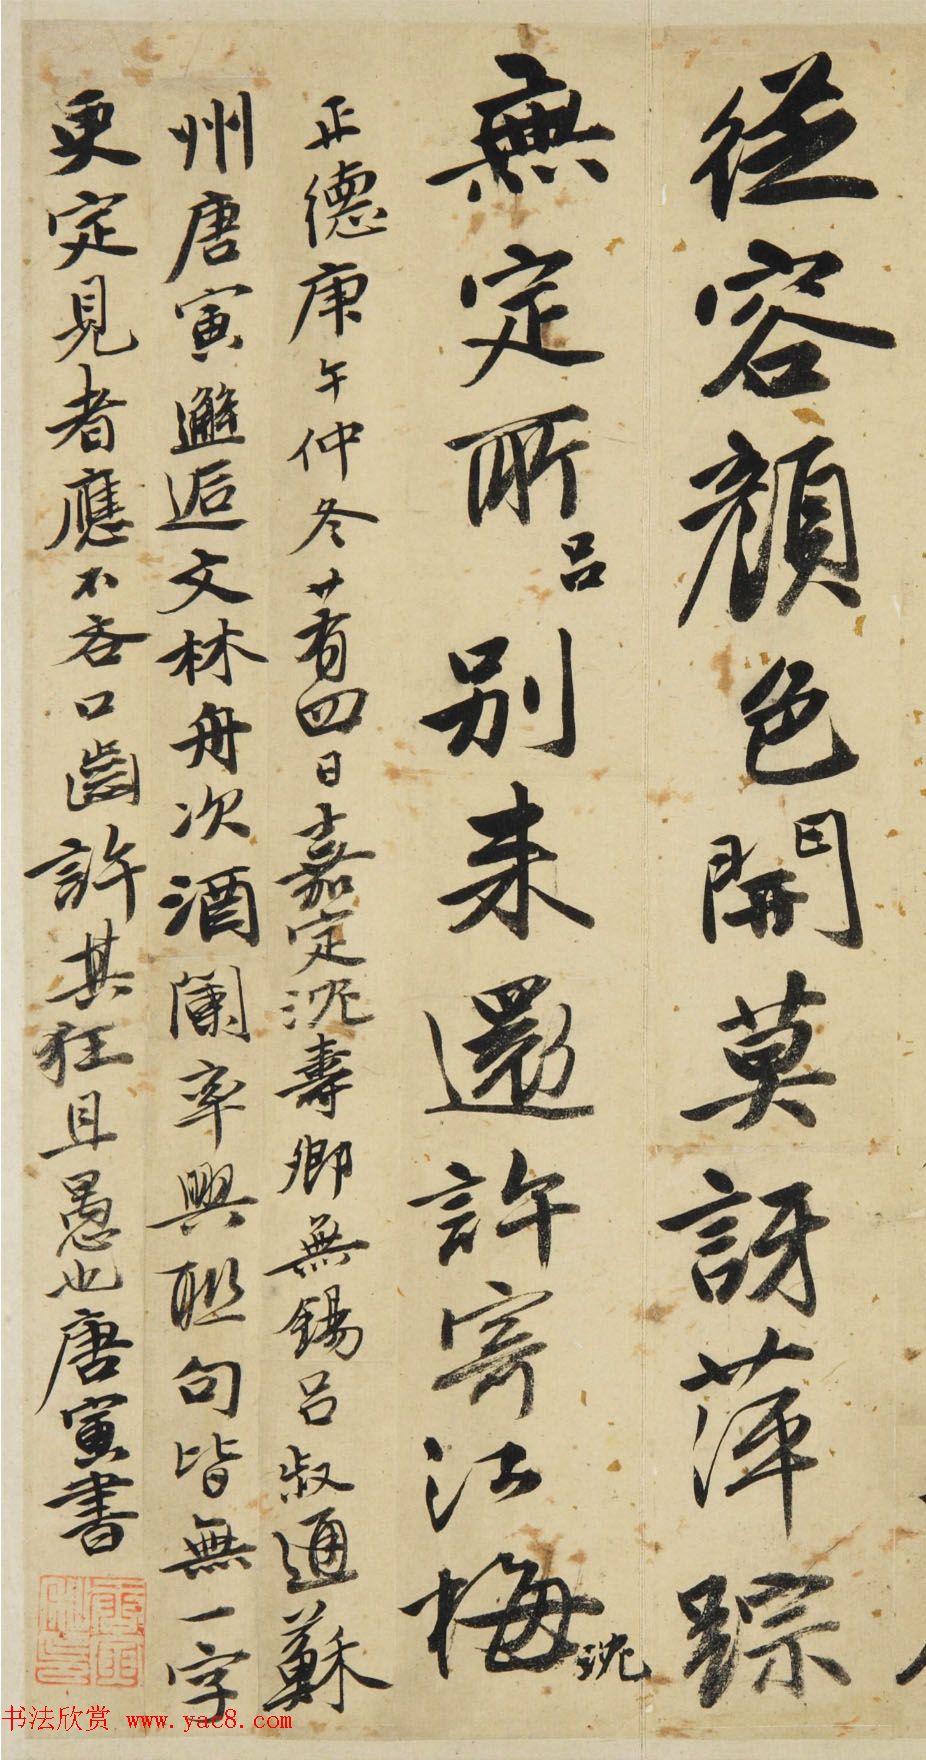 從容顏色開莫訝萍踪
無定所呂別來還許寄江梅沈
正德庚午仲冬廿有四日嘉定沈壽卿無錫呂叔通蘇
州唐寅邂逅文林舟次酒闌率興聯句皆無一字
更定見者應不吝口齒許其狂且愚也唐寅書
书法欣赏 www.yac8.com